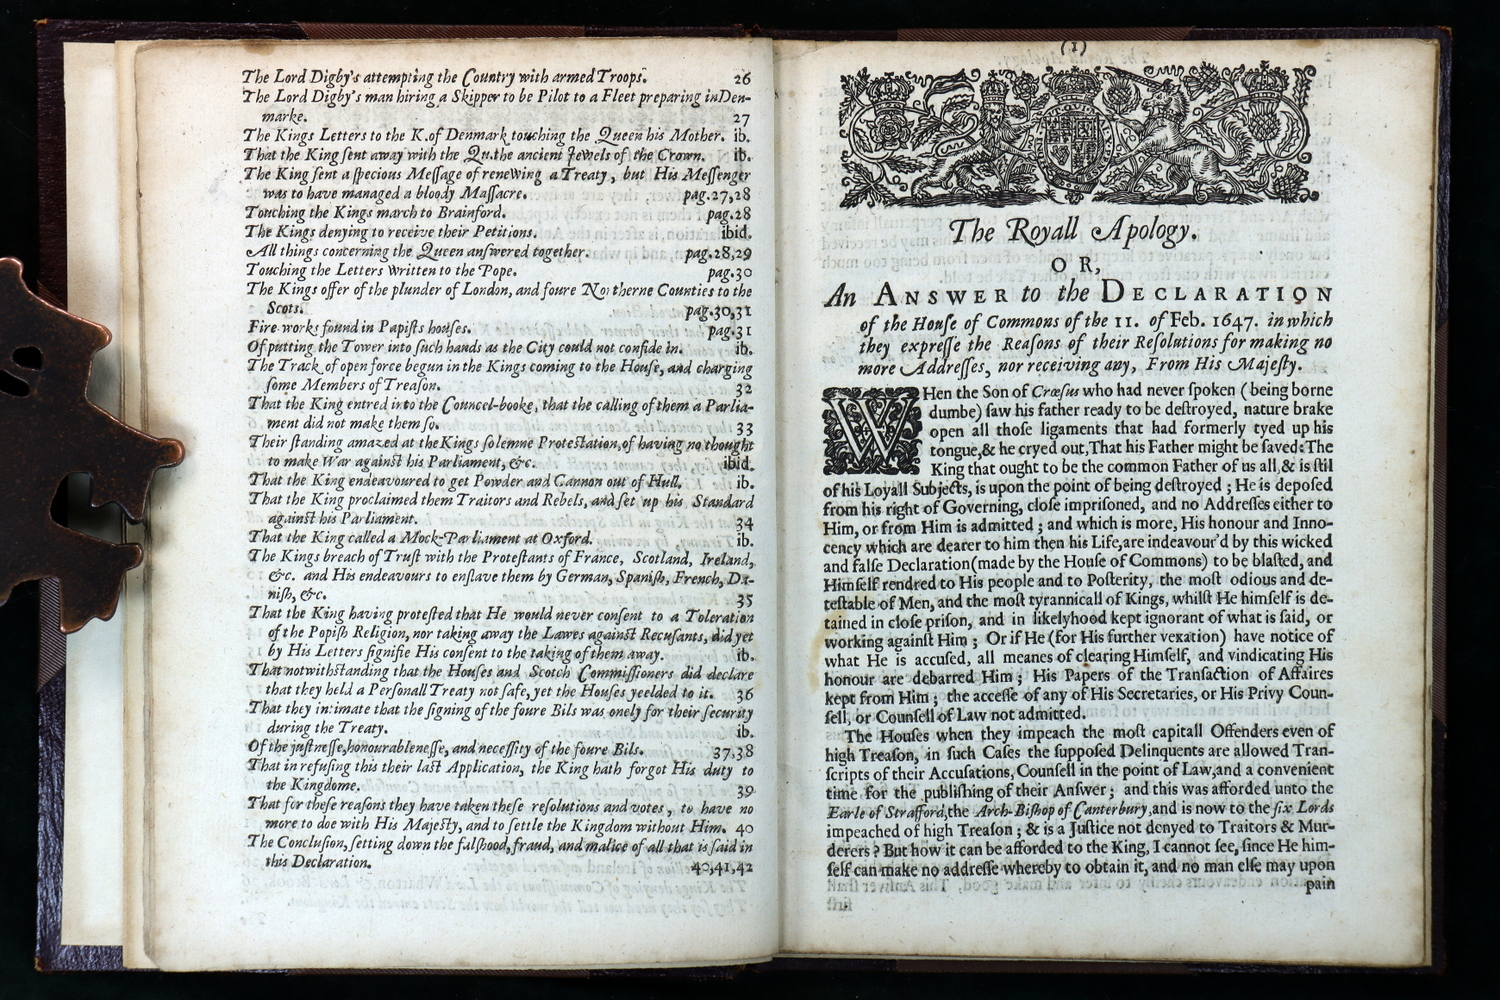 The Lord Digby's attempting the Country with armed Troops. 26
The Lord Digby's man hiring a Skipper to be Pilot to a Fleet preparing in Den-
marke. 27
The Kings Letters to the K. of Denmark touching the Queen his Mother. ib.
That the King ſent away with the Qu. the ancient Jewels of the Crown. ib.
The King ſent a ſpecious Meſſage of renewing a Treaty, but His Meſſenger
was to have managed a bloody Maſſacre. pag.27,28
Touching the Kings march to Brainford. pag.28
The Kings denying to receive their Petitions. ibid.
All things concerning the Queen anſwered together. pag.28,29
Touching the Letters written to the Pope. pag.30
The Kings offer of the plunder of London, and foure Northerne Counties to the
Scots. pag.30,31
Fire-works found in Papiſts houſes. pag.31
Of putting the Tower into ſuch hands as the City could not confide in. ib.
The Track of open force begun in the Kings coming to the Houſe, and charging
ſome Members of Treaſon. 32
That the King entred into the Councel-booke, that the calling of them a Parlia-
ment did not make them ſo. 33
Their ſtanding amazed at the Kings ſolemne Proteſtation, of having no thought
to make War againſt his Parliament, &c. ibid.
That the King endeavoured to get Powder and Cannon out of Hull. ib.
That the King proclaimed them Traitors and Rebels, and ſet up his Standard
againſt his Parliament. 34
That the King called a Mock-Parliament at Oxford. ib.
The Kings breach of Truſt with the Proteſtants of France, Scotland, Ireland,
&c. and His endeavours to enſlave them by German, Spaniſh, French, Da-
niſh, &c. 35
That the King having proteſted that He would never conſent to a Toleration
of the Popiſh Religion, nor taking away the Lawes againſt Recuſants, did yet
by His Letters ſignifie His conſent to the taking of them away. ib.
That notwithſtanding that the Houſes and Scotch Commiſſioners did declare
that they held a Perſonall Treaty not ſafe, yet the Houſes yeelded to it. 36
That they intimate that the ſigning of the foure Bils was onely for their ſecurity
during the Treaty. ib.
Of the juſtneſſe, honourableneſſe, and neceſſity of the foure Bils. 37,38
That in refuſing this their laſt Application, the King hath forgot His duty to
the Kingdome. 39
That for theſe reaſons they have taken theſe reſolutions and votes, to have no
more to doe with His Majeſty, and to ſettle the Kingdom without Him. 40
The Concluſion, ſetting down the falſhood, fraud, and malice of all that is ſaid in
this Declaration. 40,41,42
(1)
The Royall Apology.
OR,
An ANSWER to the DECLARATION
of the Houſe of Commons of the 11. of Feb. 1647. in which
they expreſſe the Reaſons of their Reſolutions for making no
more Addreſſes, nor receiving any, From His Majeſty.
WHen the Son of Crœſus who had never ſpoken (being borne
dumbe) ſaw his father ready to be deſtroyed, nature brake
open all thoſe ligaments that had formerly tyed up his
tongue,& he cryed out, That his Father might be ſaved: The
King that ought to be the common Father of us all,& is ſtil
of his Loyall Subjects, is upon the point of being deſtroyed ; He is depoſed
from his right of Governing, cloſe impriſoned, and no Addreſſes either to
Him, or from Him is admitted ; and which is more, His honour and Inno-
cency which are dearer to him then his Life, are indeavour'd by this wicked
and falſe Declaration (made by the Houſe of Commons) to be blaſted, and
Himſelf rendred to His people and to Poſterity, the moſt odious and de-
teſtable of Men, and the moſt tyrannicall of Kings, whilſt He himſelf is de-
tained in cloſe priſon, and in likelyhood kept ignorant of what is ſaid, or
working againſt Him ; Or if He (for His further vexation) have notice of
what He is accuſed, all meanes of clearing Himſelf, and vindicating His
honour are debarred Him ; His Papers of the Tranſaction of Affaires
kept from Him ; the acceſſe of any of His Secretaries, or His Privy Coun-
ſell, or Counſell of Law not admitted.
The Houſes when they impeach the moſt capitall Offenders even of
high Treaſon, in ſuch Caſes the ſuppoſed Delinquents are allowed Tran-
ſcripts of their Accuſations, Counſell in the point of Law, and a convenient
time for the publiſhing of their Anſwer ; and this was afforded unto the
Earle of Strafford, the Arch-Biſhop of Canterbury, and is now to the ſix Lords
impeached of high Treaſon ; & is a Juſtice not denyed to Traitors & Mur-
derers ? But how it can be afforded to the King, I cannot ſee, ſince He him-
ſelf can make no addreſſe whereby to obtain it, and no man elſe may upon
pain